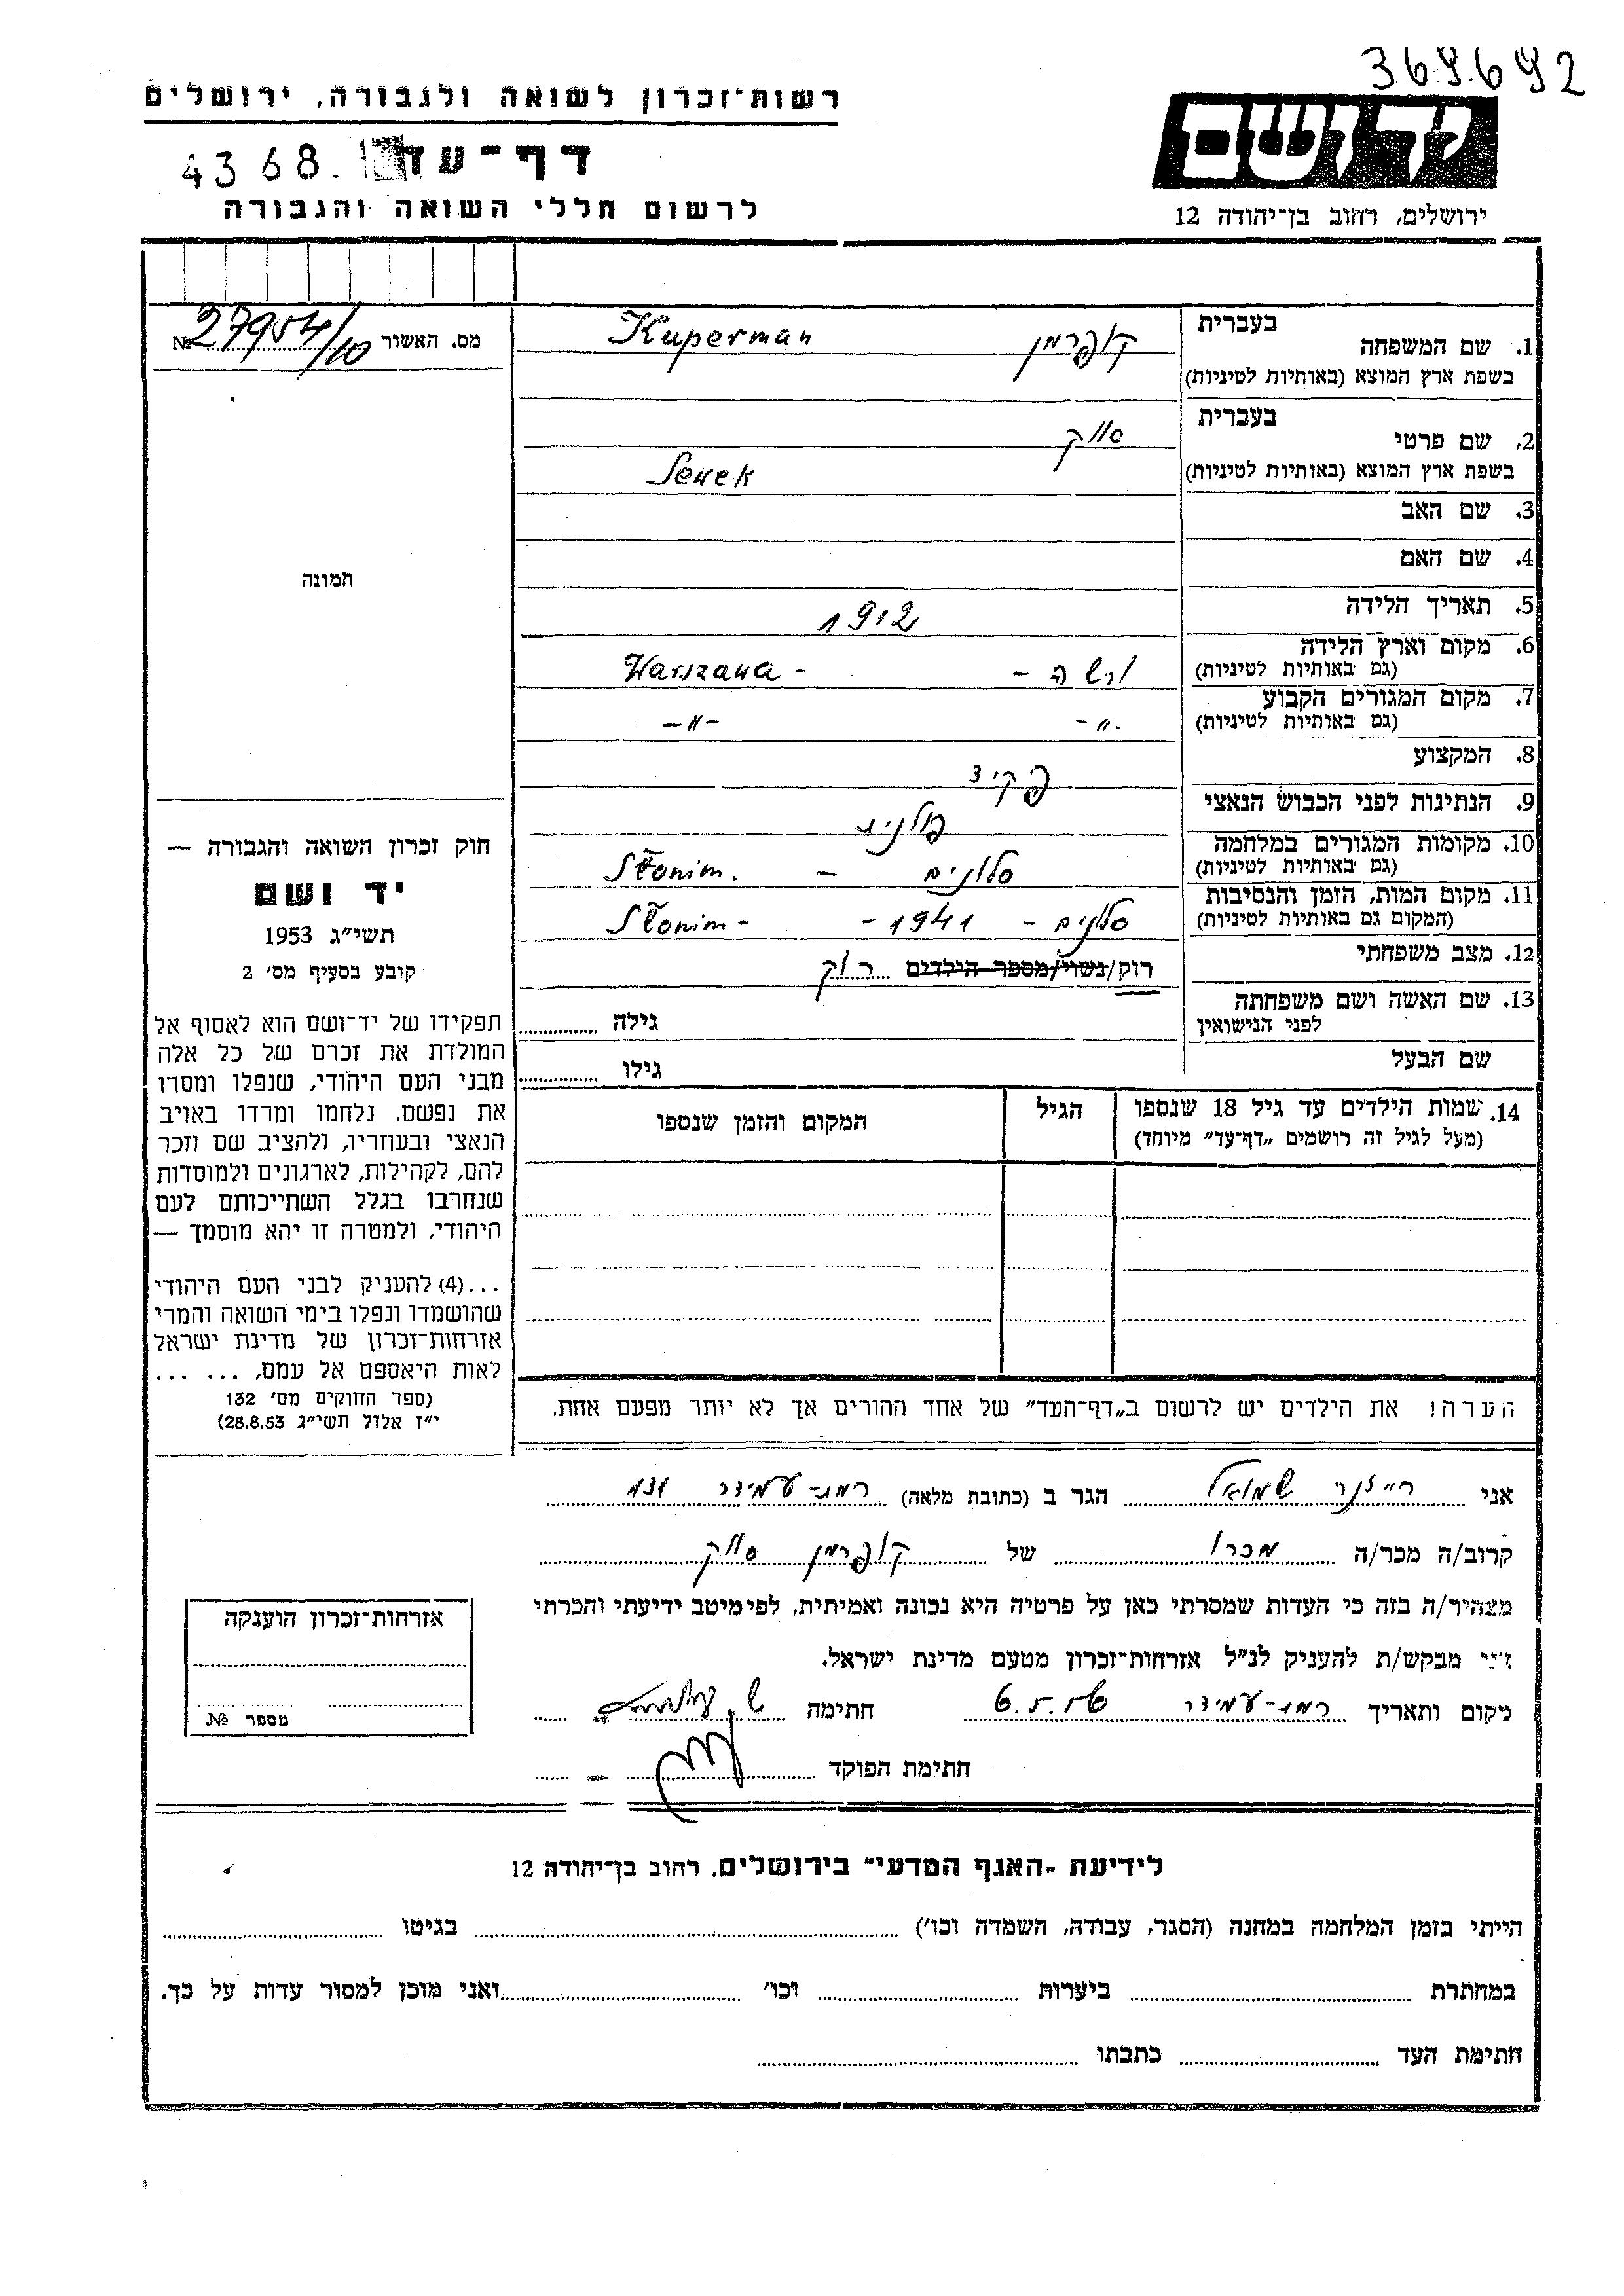 369692
רשות־זכרון לשואה ולגבורה, ירושלים
יד ושם
דף־עד
4368.
לרשום חללי השואה והגבורה
ירושלים, רחוב בן־יהודה 12
מס. האשור № 27954/10
1. שם המשפחה בעברית קופרמן Kuperman
בשפת ארץ המוצא (באותיות לטיניות)
2. שם פרטי בעברית סווק
בשפת ארץ המוצא (באותיות לטיניות) Sewek
3. שם האב
4. שם האם
תמונה
5. תאריך הלידה 1912
6. מקום וארץ הלידה
(גם באותיות לטיניות) ורשה - Warszawa -
7. מקום המגורים הקבוע
(גם באותיות לטיניות) -"- -"-
8. המקצוע פקיד
9. הנתינות לפני הכבוש הנאצי פולנית
10. מקומות המגורים במלחמה
(גם באותיות לטיניות) סלונים - Słonim.
11. מקום המות, הזמן והנסיבות
(המקום גם באותיות לטיניות) סלונים - 1941 - Słonim -
12. מצב משפחתי רוק/נשוי/מספר הילדים רוק
13. שם האשה ושם משפחתה
לפני הנישואין גילה
שם הבעל גילו
14. שמות הילדים עד גיל 18 שנספו הגיל המקום והזמן שנספו
(מעל לגיל זה רושמים "דף־עד" מיוחד)
הערה! את הילדים יש לרשום ב"דף־העד" של אחד ההורים אך לא יותר מפעם אחת.
חוק זכרון השואה והגבורה —
יד ושם
תשי"ג 1953
קובע בסעיף מס׳ 2
תפקידו של יד־ושם הוא לאסוף אל
המולדת את זכרם של כל אלה
מבני העם היהודי, שנפלו ומסרו
את נפשם, נלחמו ומרדו באויב
הנאצי ובעוזריו, ולהציב שם וזכר
להם, לקהילות, לארגונים ולמוסדות
שנחרבו בגלל השתייכותם לעם
היהודי, ולמטרה זו יהא מוסמך —
...(4) להעניק לבני העם היהודי
שהושמדו ונפלו בימי השואה והמרי
אזרחות־זכרון של מדינת ישראל
לאות היאספם אל עמם, ... ...
(ספר החוקים מס׳ 132
י"ז אלול תשי"ג 28.8.53)
אני שמואל הגר ב (כתובת מלאה) רמת-עמידר 131
קרוב/ה מכר/ה מכרו של קופרמן סווק
מצהיר/ה בזה כי העדות שמסרתי כאן על פרטיה היא נכונה ואמיתית, לפי מיטב ידיעתי והכרתי
מבקש/ת להעניק לנ"ל אזרחות־זכרון מטעם מדינת ישראל.
מקום ותאריך רמת-עמידר 6.5.56 חתימה
חתימת הפוקד
אזרחות־זכרון הוענקה
מספר №
לידיעת "האגף המדעי" בירושלים, רחוב בן־יהודה 12
הייתי בזמן המלחמה במחנה (הסגר, עבודה, השמדה וכו׳) בגיטו
במחתרת ביערות וכו׳ ואני מוכן למסור עדות על כך.
חתימת העד כתבתו